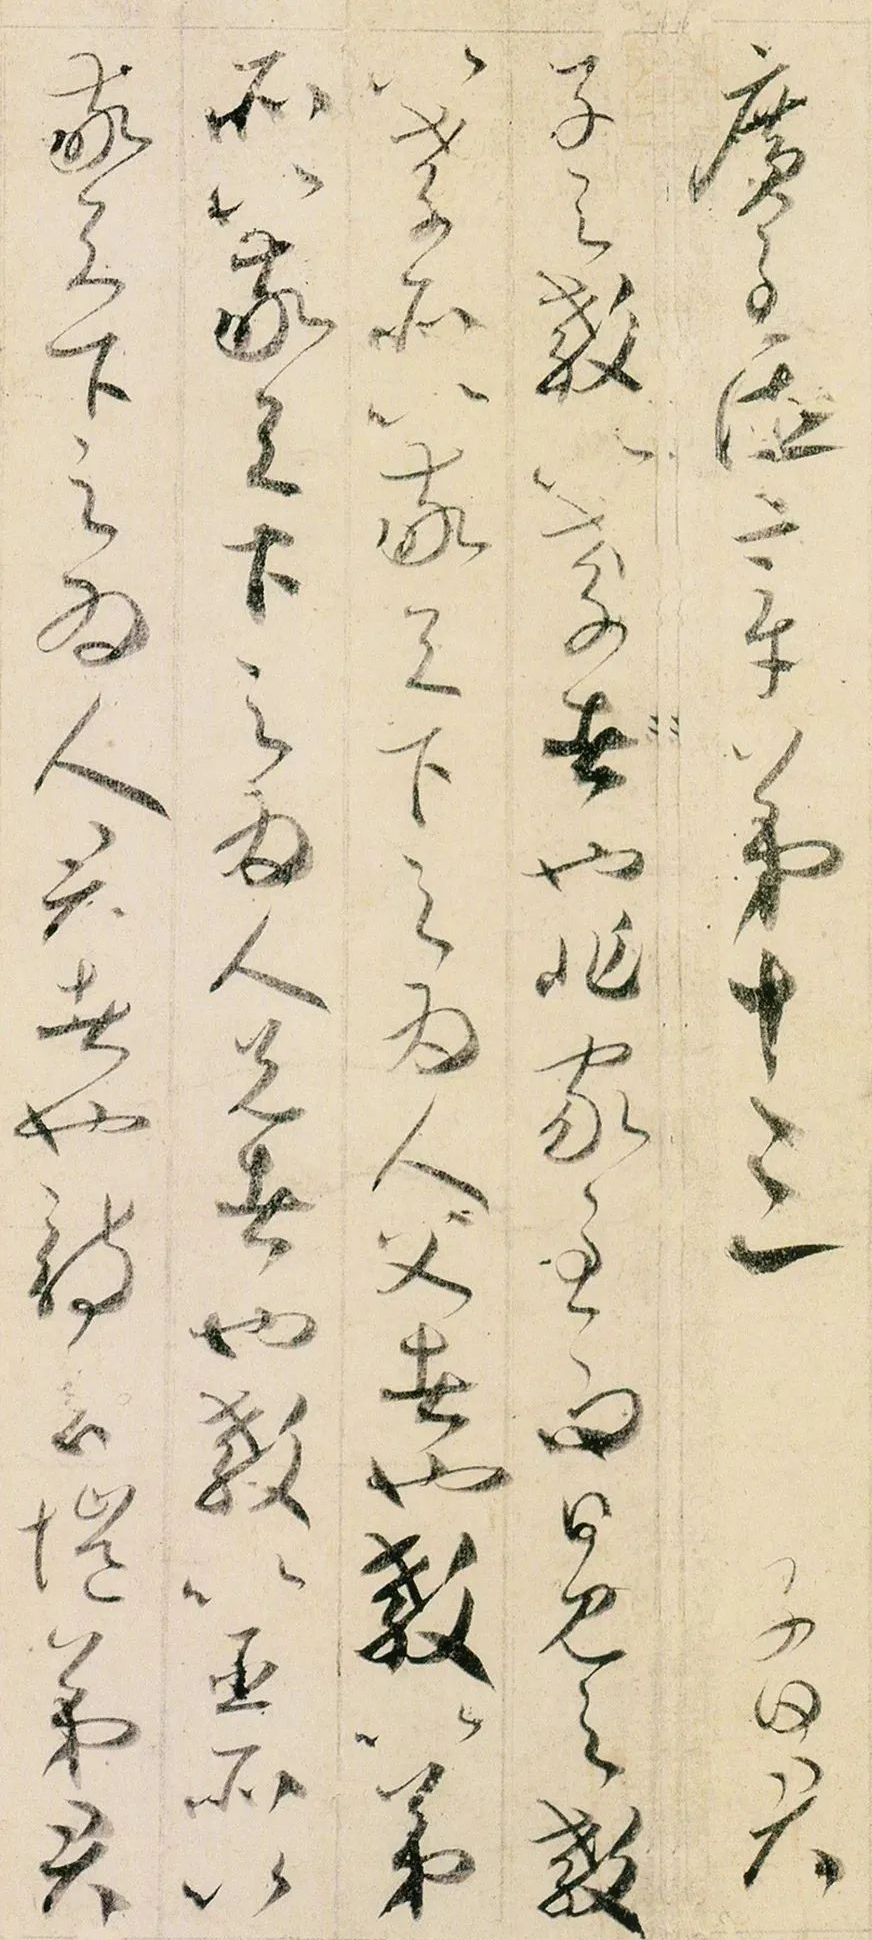 廣至德章第十三 子曰君
子之教以孝者也非家至而日見之教
以孝所以敬天下之為人父者也教以弟
所以敬天下之為人兄者也教以臣所以
敬天下之為人君者也詩云愷弟君